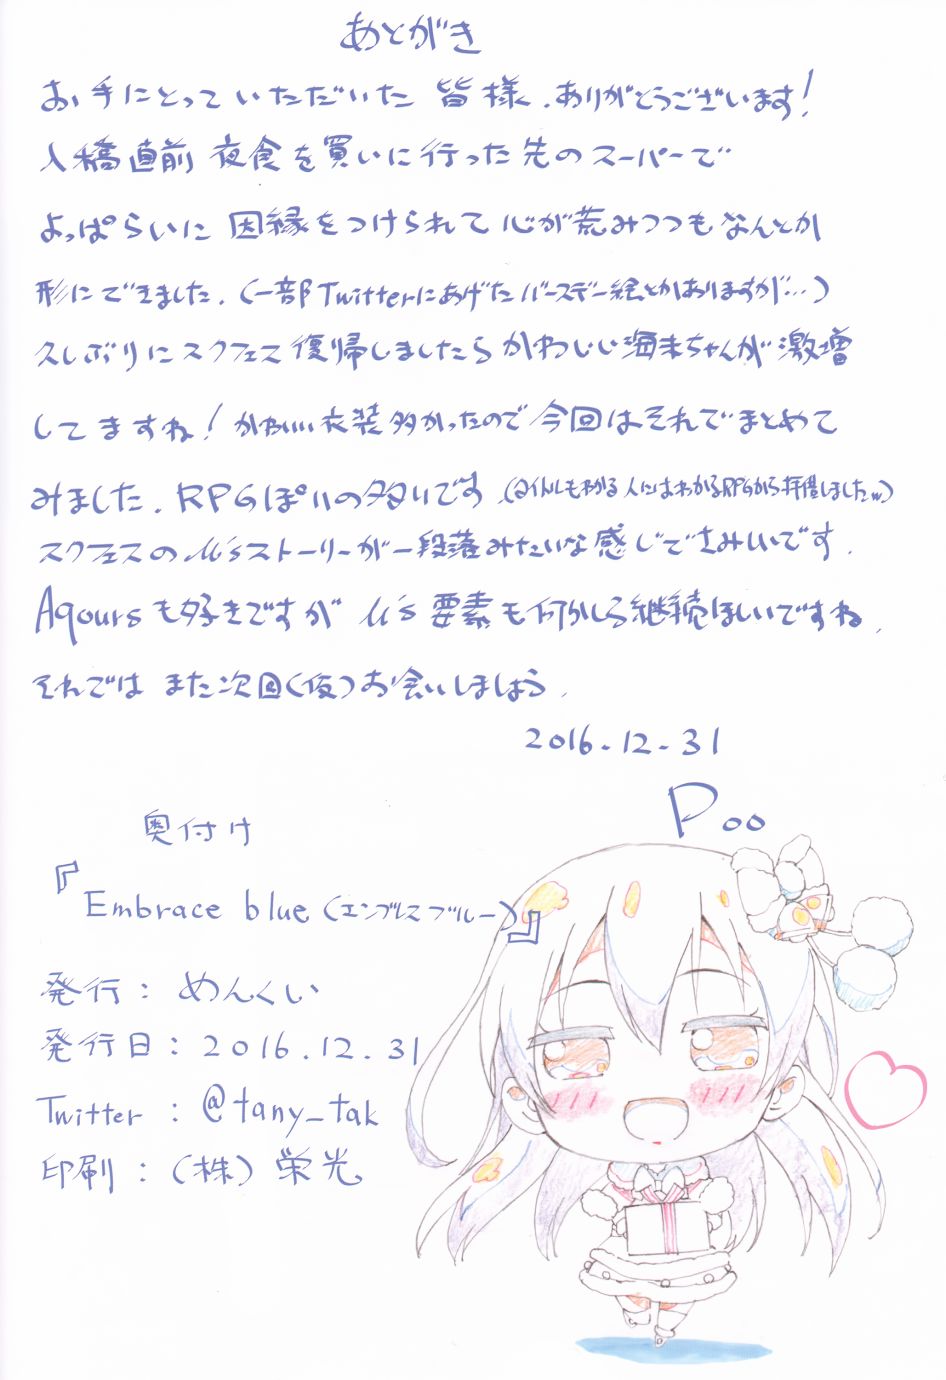 あとがき
お手にとっていただいた 皆様、ありがとうございます!
入稿直前 夜食を買いに行った先のスーパーで
よっぱらいに 因縁をつけられて 心が荒みつつもなんとか
形にできました。(一部Twitterにあげたバースデー絵とかはありますが…)
久しぶりにスクフェス復帰しましたら かわいい海未ちゃんが激増
してますね! かわいい衣装多かったので今回はそれでまとめて
みました。RPGぽいの多いです (タイトルもわかる人にはわかるRPGから拝借しましたw)
スクフェスのμ'sストーリーが一段落みたいな感じでさみしいです。
Aqoursも好きですが μ's要素も何かしら継続ほしいですね。
それでは また次回(仮)お会いしましょう。
2016.12.31
Poo
奥付け
『Embrace blue(エンブレスブルー)』
発行: めんくい
発行日: 2016.12.31
Twitter : @tany_tak
印刷: (株) 栄光。